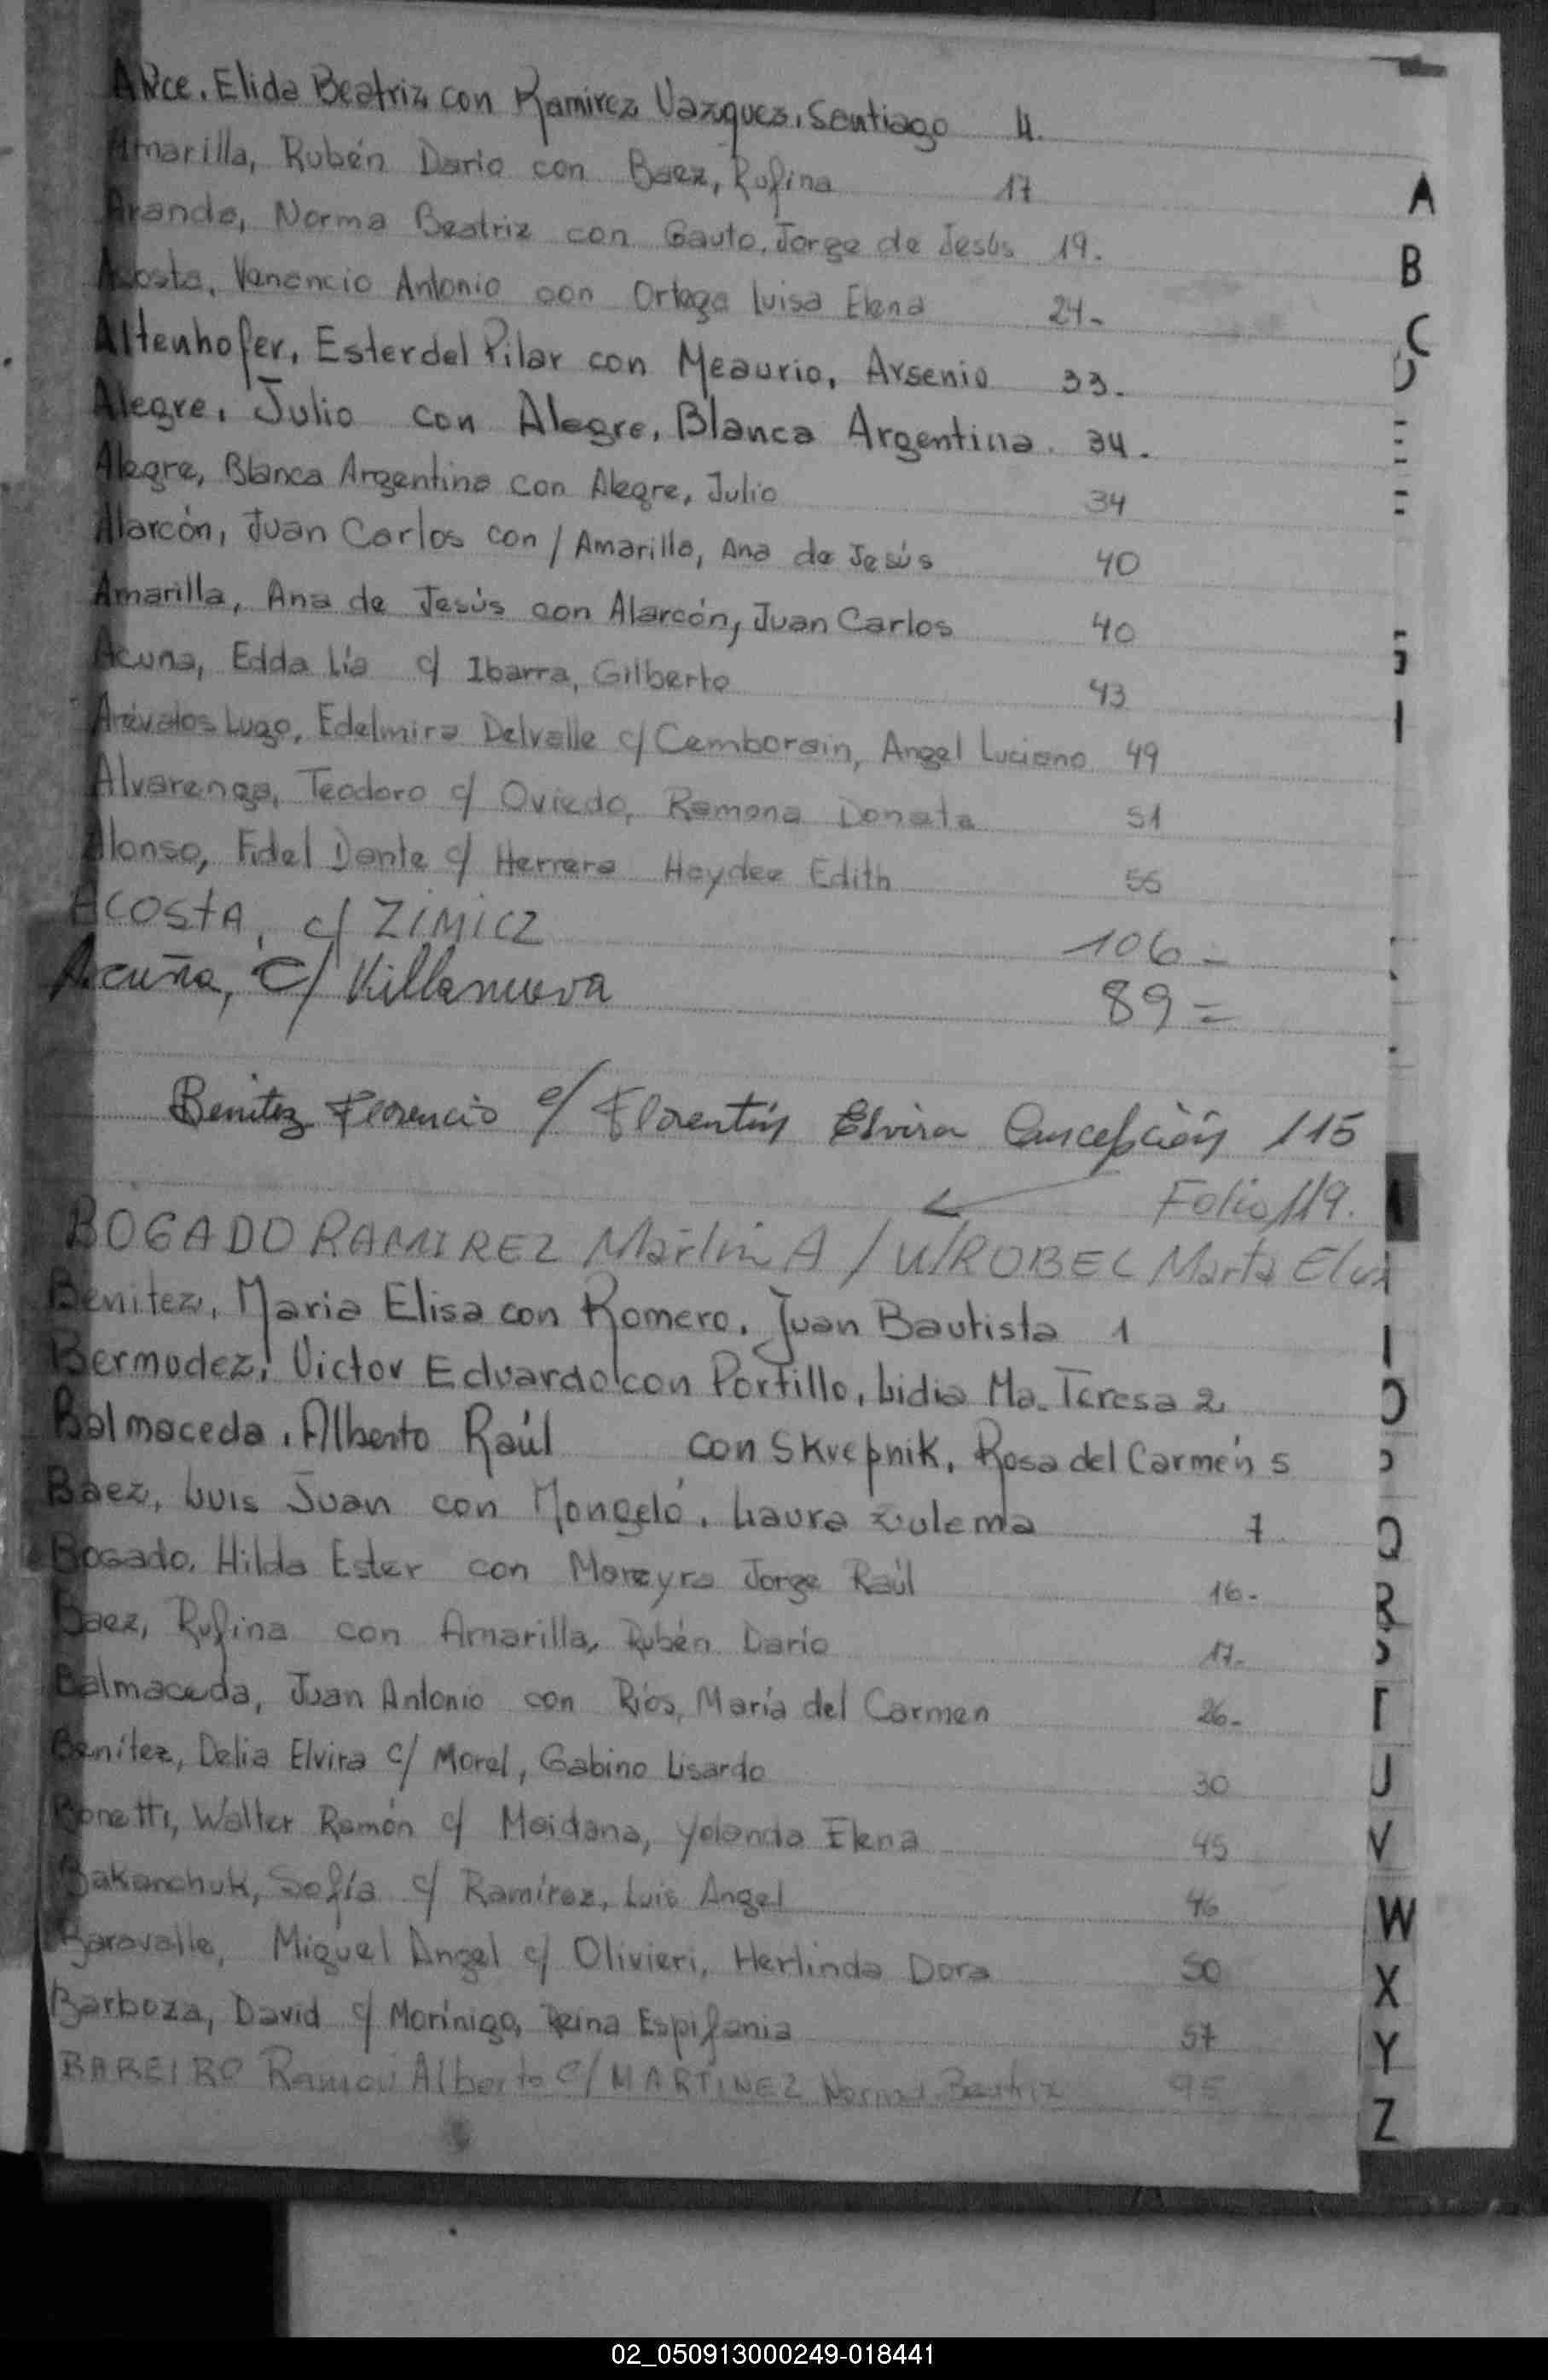 Arce, Elida Beatriz con Ramirez Vazquez, Santiago 4.
Amarilla, Rubén Dario con Baez, Rufina 17
Aranda, Norma Beatriz con Gauto, Jorge de Jesús 19.
Acosta, Venancio Antonio con Ortega Luisa Elena 24-
Altenhofer, Ester del Pilar con Meaurio, Arsenio 33.
Alegre, Julio con Alegre, Blanca Argentina. 34.
Alegre, Blanca Argentina con Alegre, Julio 34
Alarcón, Juan Carlos con / Amarilla, Ana de Jesús 40
Amarilla, Ana de Jesús con Alarcón, Juan Carlos 40
Acuna, Edda Lía c/ Ibarra, Gilberto 43
Arévalos Lugo, Edelmira Delvalle c/ Cemborain, Angel Luciano 49
Alvarenga, Teodoro c/ Oviedo, Ramona Donata 51
Alonso, Fidel Dante c/ Herrera Haydee Edith 55
ACOSTA, c/ ZIMICZ 106-
Acuña, c/ Villanueva 89=
Benitez Florencio c/ Florentín Elvira Concepción 115
Folio 119.
BOGADO RAMIREZ Martin A / WROBEL Marta Elva
Benitez, Maria Elisa con Romero, Juan Bautista 1
Bermudez, Victor Eduardo con Portillo, Lidia Ma. Teresa 2
Balmaceda, Alberto Raúl con Skrepnik, Rosa del Carmen 5
Baez, Luis Juan con Mongeló, Laura Zulema 7
Bogado, Hilda Ester con Moreyra Jorge Raúl 16-
Baez, Rufina con Amarilla, Rubén Darío 17-
Balmaceda, Juan Antonio con Ríos, María del Carmen 26-
Benítez, Delia Elvira c/ Morel, Gabino Lisardo 30
Bonetti, Walter Ramón c/ Maidana, Yolanda Elena 45
Bakanchuk, Sofía c/ Ramírez, Luis Angel 46
Baravalle, Miguel Angel c/ Olivieri, Herlinda Dora 50
Barboza, David c/ Morínigo, Reina Espifania 57
BAREIRO Ramón Alberto c/ MARTINEZ Norma Beatriz 95
A
B
C
D
G
I
O
P
Q
R
S
T
U
V
W
X
Y
Z
02_050913000249-018441